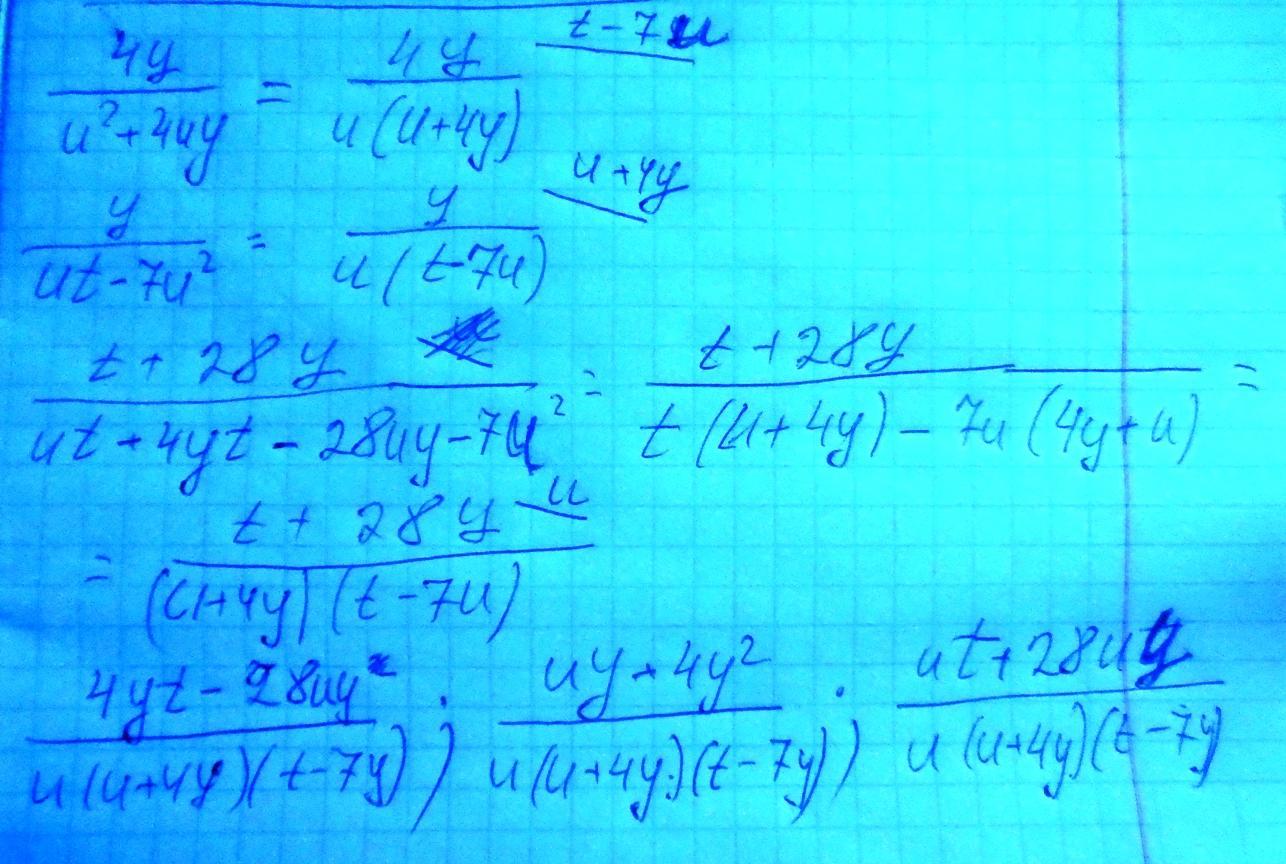 4y/(u²+4uy) = 4y/(u(u+4y)) t-7u
y/(ut-7u²) = y/(u(t-7u)) u+4y
(t+28y)/(ut+4yt-28uy-7u²) = (t+28y)/(t(u+4y)-7u(4y+u)) =
= (t+28y)/((u+4y)(t-7u)) u
(4yt-28uy)/(u(u+4y)(t-7y)); (uy+4y²)/(u(u+4y)(t-7y)); (ut+28uy)/(u(u+4y)(t-7y))